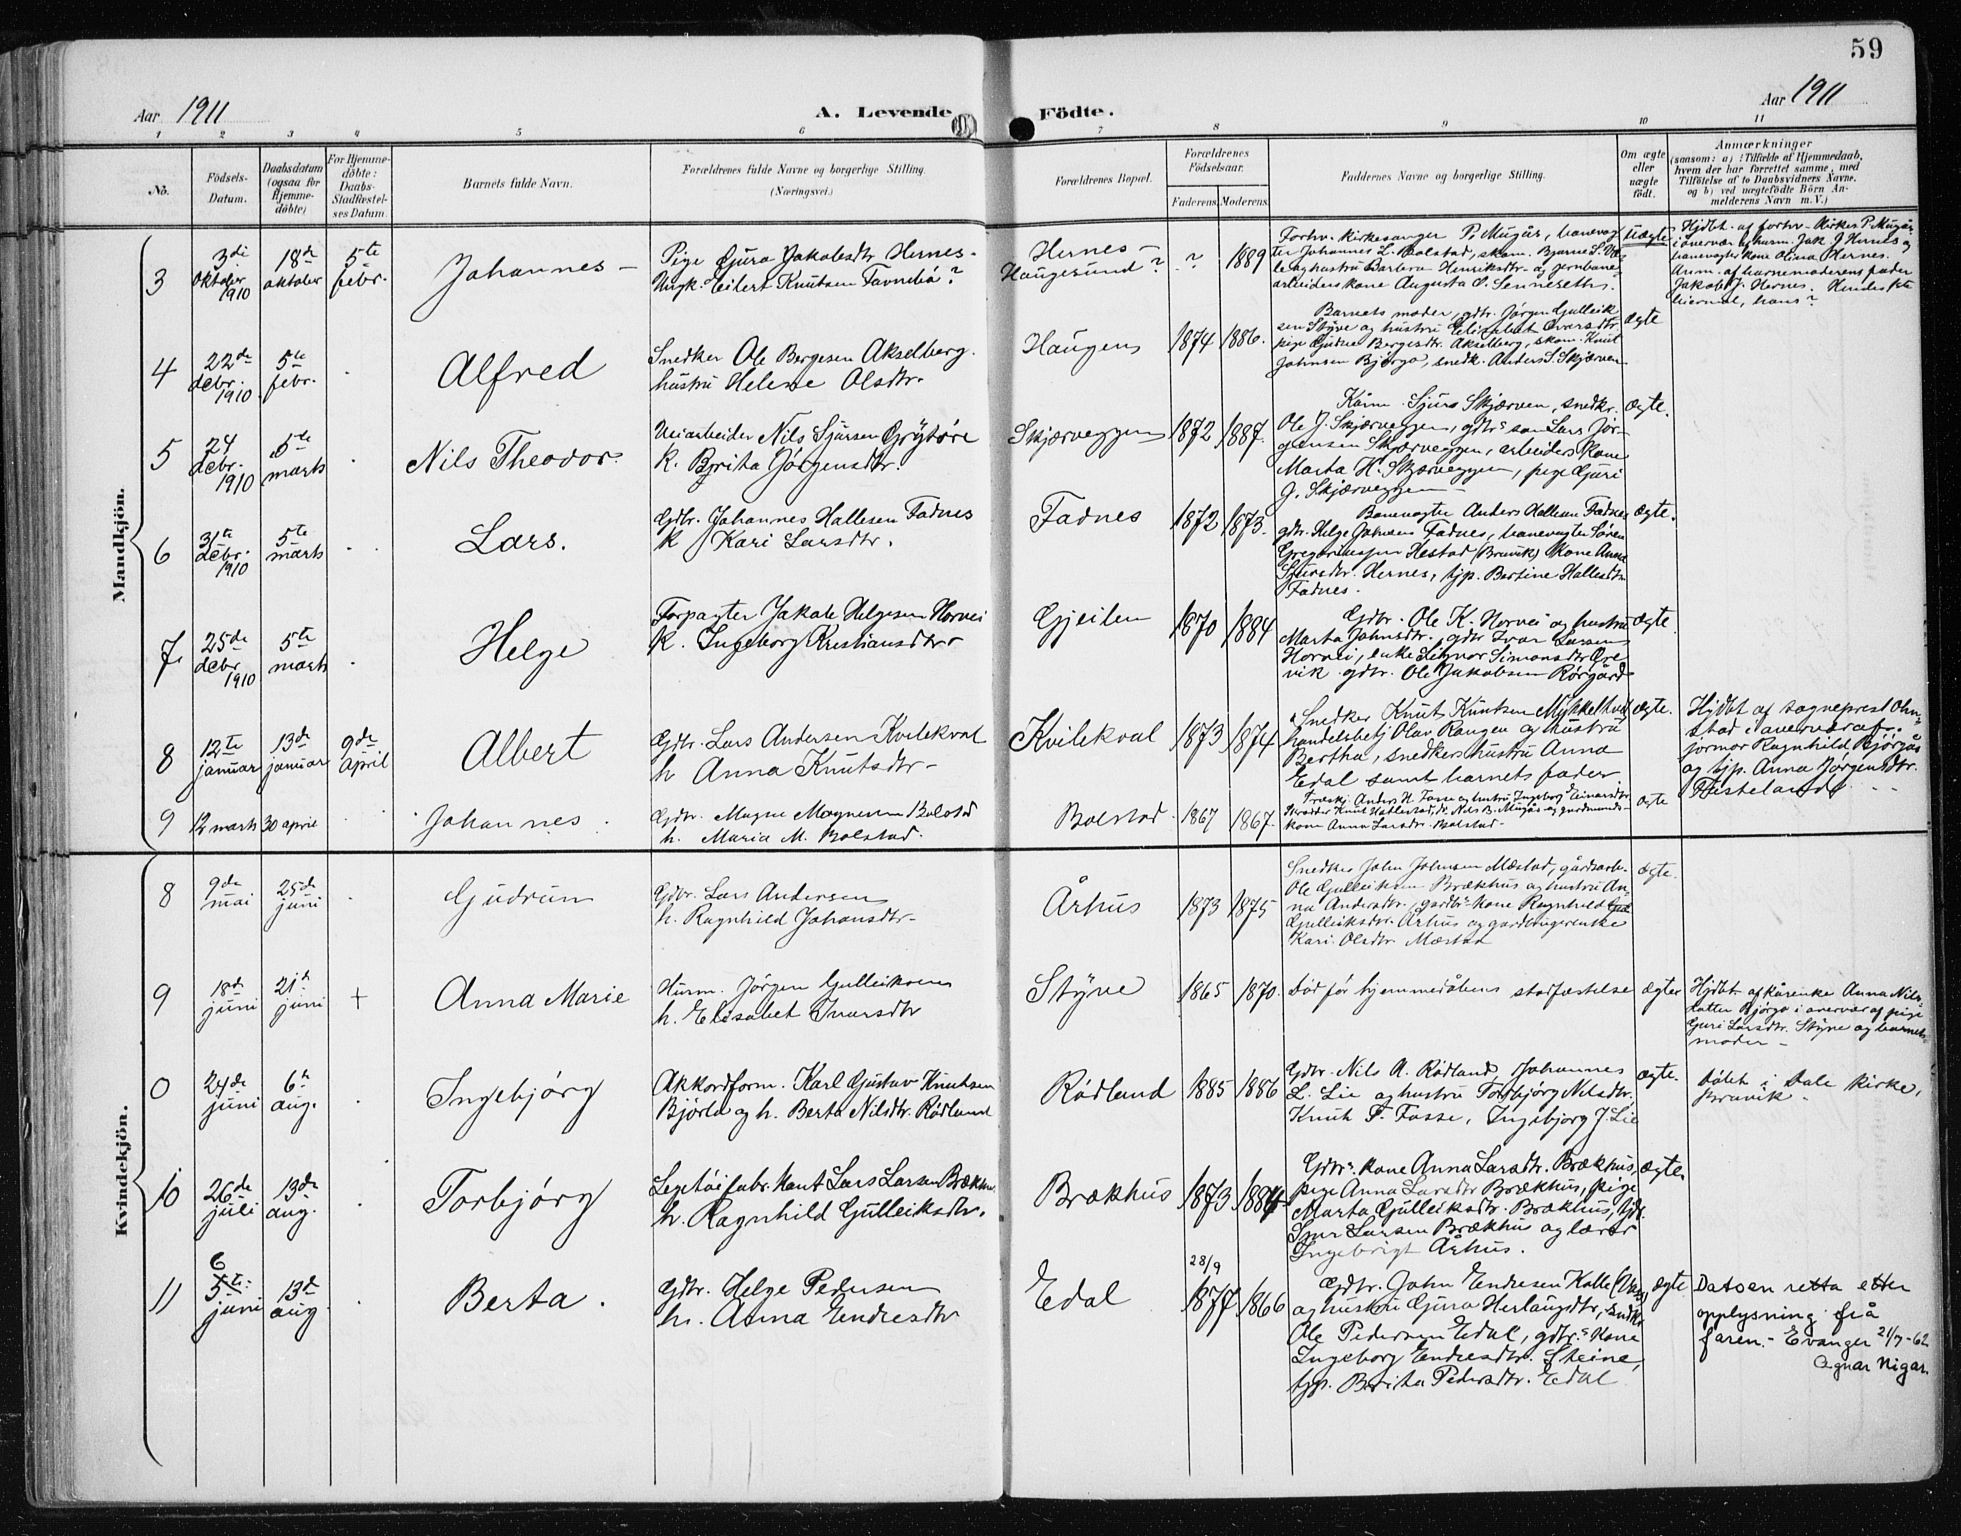 59
Aar 1911
A. Levende Födte.
Aar 1911
1 2 3 4 5 6 7 8 9 10 11
No.
Födsels-
Datum.
Daabsdatum
(ogsaa for
Hjemme-
döbte)
For Hjemme-
döbte:
Daabs-
Stadfæstel-
ses Datum.
Barnets fulde Navn.
Forældrenes fulde Navne og borgerlige Stilling.
(Næringsvei.)
Forældrenes Bopæl.
Forældrenes
Födselsaar.
Faderens. Moderens.
Faddernes Navne og borgerlige Stilling.
Om ægte
eller
uægte
födt.
Anmærkninger
(saasom: a) i Tilfælde af Hjemmedaab,
hvem der har forrettet samme, med
Tilföielse af to Daabsvidners Navne.
og b) ved uægtefödte Börn An-
melderens Navn m. V.)
Mandkjön.
3
3di
oktober
1910
18de
oktober
5te
febr.
Johannes
Pige Guro Jakobsdtr Hernes
Ungk. Eilert Knutsen Favnebö?
Hernes
Haugesund?
?
1889
Forhv. kirkesanger P. Mugås, banevog-
ter Johannes L. Bolstad, skom. Bjarne S.
og hustru Barbra Henriksdtr. og jernbane-
arbeiders kone Augusta O. Senneseth.
uægte
Hjdbt. af forhv. kirkes. P. Mugås
i overvær af husm. Jak. J. Hernes og
banevogters kone Olina Hernes.
Anm. af barnemoderens fader
Jakob J. Hernes. Hendes 1ste
leiermål, hans?
4
22de
debr.
1910
5te
febr.
Alfred
Snedker Ole Bergesen Akselberg.
hustru Helene Olsdtr.
Haugen
1874
1886.
Barnets moder, gdbr. Jørgen Gulleik
sen Styve og hustru Elisabet Ivarsdtr.
pige Gudne Bergesdtr. Akselberg, skom. Knut
Johnsen Bjørgo, snedk. Anders S. Skjerven
ægte
5
24
debr.
1910
5te
marts
Nils Theodor
Veiarbeider Nils Sjursen Grytøre
k. Brita Jørgensdtr.
Skjerveggen
1872
1887.
Kårm. Sjurs Skjerven, snedkr.
Ole J. Skjerveggen, gdbrs søn Lars Jør-
gensen Skjerveggen, arbeiders kone
Marta H. Skjerveggen, pige Guri
J. Skjerveggen
ægte.
6
31te
debr.
1910
5te
marts
Lars.
Gdbr. Johannes Hallesen Fadnes
k Kari Larsdtr.
Fadnes
1872
1873.
Banevogter Anders Hallesen Fadnes
gdbr. Helge Johnsens Fadnes, banevogter Søren
Gregoriussen Hestad (Bruvik) kone Anna
Sjursdtr. Hernes, tjp. Bertine Hallesdtr
Fadnes.
ægte.
7
25de
debr
1910
5te
marts
Helge
Forpagter Jakob Helgesen Horvei
k. Ingeborg Kristiansdtr
Gjeilen
1870
1884
Gdbr. Ole K. Horvei og hustru
Marta Johnsdtr. gdbr Ivar Larsen
Horvei, enke Simonsdtr Øre
vik gdbr. Ole Jakobsen Rørgård
ægte
8
12te
januar
13de
januar
9de
april
Albert
Gdbr. Lars Andersen Kvilekval
h Anna Knutsdtr
Kvilekval
1873
1874
Snedker Knut Knutsen Mykkeltvedt
handelsbetj Olav Rongen og hustru
Bertha, snedkers hustru Anna
Edal samt barnets fader
ægte.
Hjdbt af sogneprest Ohn-
stad i overvær af
jormor Ragnhild Bjørgås
og tjp. Anna Jørgensdtr.
9
12 marts
30 april
Johannes
Gdbr. Magne Magnesen Bolstad
h. Maria M. Bolstad.
Bolstad
1867
1867.
Træskj. Anders K. Fosse og hustru Ingeborg Einarsdtr
kone Anna Larsdtr Bolstad
ægte
Kvindekjön.
8
9de
mai
25de
juni
Gudrun
Gdbr. Lars Andersen
h. Ragnhild Johansdtr
Århus
1873
1875
Snedker John Johnsen Mæstad, gårdsarb.
Ole Gulleiksen Brækhus og hustru An-
na Andersdtr, gardbrs kone Ragnhild
Gulleiksdtr. Århus og gardbrugerenke
Kari Olsdtr. Mæstad
ægte.
9
18de
juni
21de
juni
+
Anna Marie
Husm. Jørgen Gulleiksen
h. Elisabet Ivarsdtr
Styve
1865
1870.
Død før hjemmedåbens stadfæstelse
ægte
Hjdbt. af kårenke Anna Nils-
datter Bjørgo i overvær af pige
Guri Larsdtr. Styve og barnets
moder
0
24de
juni
6te
aug.
Ingebjørg
Akkordform. Karl Gustav Knutsen
Bjørlo og h. Berta Nilsdtr. Rødland
Rødland
1885
1886
Gdbr. Nils A. Rødland, Johannes
L. Lie og hustru Torbjørg Nilsdtr.
Knut F. Fosse, Ingebjørg J. Lie
ægte.
Døbt i Dale kirke,
Bruvik
10
26de
juli
13de
aug.
Torbjørg
Legetøifabrikant Lars Larsen Brækhus
h. Ragnhild Gulleiksdtr.
Brækhus
1873
1884
Gdbrs. kone Anna Larsdtr. Brækhus,
pige Anna Larsdtr Brækhus, pige
Marta Gulleiksdtr. Brækhus,
Sjur Larsen Brækhus og lærer
Ingebrigt Århus.
ægte
11
6
5te
juni
13de
aug
Berta.
Gdbr. Helge Pedersen
h. Anna Endresdtr
Edal
28/9
1877
1866
Gdbr. John Endresen Kalle
og hustru Gjura Herlaugdtr, snedkr
Ole Pedersen Edal, gdbrs kone
Ingeborg Endresdtr. Steine,
tjp. Brita Pedersdtr. Edal
ægte
Datoen retta etter
opplysning frå
faren - Evanger 21/7-62
Agnar Nigar.